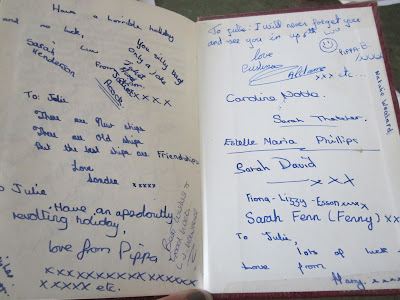 Have a horrible holiday
and no luck,
You silly twit
Only a joke
luv
From
Sarah
Henderson
To: Julie
There are New ships
There are Old ships
But the best ships are Friendships
Love
Sandra xxxx
Julie
Have an apsoloutly
revolting holiday,
love from Pippa
xxxxxxxxxxxxxxx
xxxxx etc.
To Julie, I will never forget you
and see you in up
love
PIPPA B
xxx etc...
Caroline
Sarah Thatcher
Estelle Maria Phillips
Sarah David
xxx
Fiona - Lizzy -
Sarah Fenn (Fenny) xx
To Julie,
lots of luck
Love from